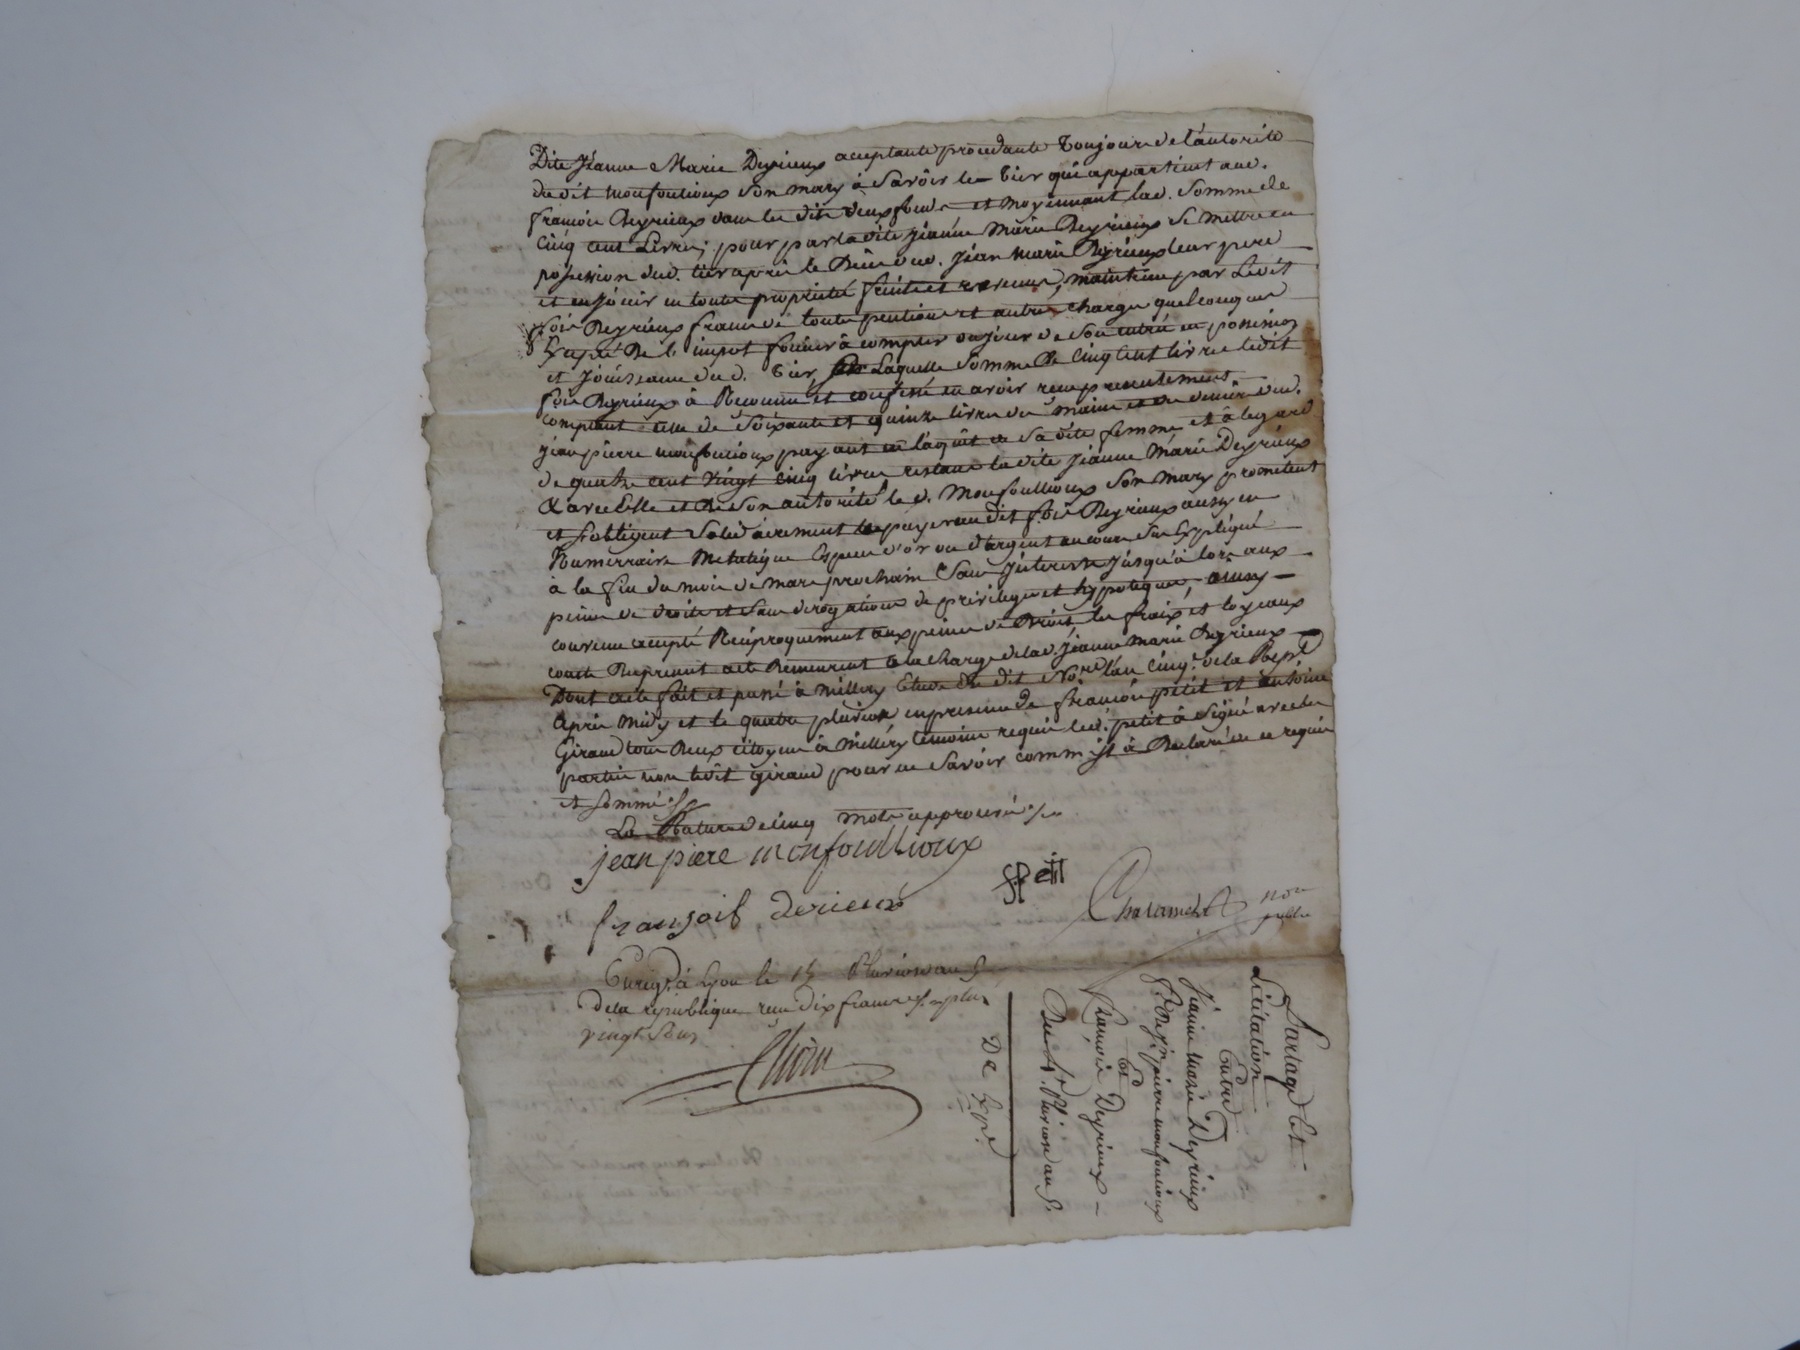 Dite Jéanne Marie Deyrieux acceptante procedante toujours de l'autorité
dudit monfoulioux son mary à savoir le tier qui appartient aud.
francois Deyrieux dans les dits deux fonds et moyennant lad. somme de
cinq cent livres; pour par la dite jéanne Marie Deyrieux se mettre en
possession dud. tier après le décès dud. jéan marie Deyrieux leur pere
et en jouir en toute propriété fruits et revenus, maintenu par le dit
fois Deyrieux franc de toute pention et autre charge quelconque
excepté de l'impot foncier à compter du jour de son entrée en possession
et jouissance dud. tier laquelle somme de cinq cent livres ledit
fois Deyrieux à reconnu et confessé en avoir reçu presentement
comptant celle de soixante et quinze livres des mains et des deniers dud.
jéan pierre monfoulioux payant en l'aquit de sa dite femme et à legard
de quatre cent vingt cinq livres restans la dite jéanne Marie Deyrieux
& avec elle et de son autorité le d. Monfoullioux son mary promettent
et s'obligent solidairement les payer au dit fois Deyrieux aussy en
numerraire metalique espece d'or ou d'argent au cours sus expliqué
à la fin du mois de mars prochain sans interets jusqu'à lors aux
peines de droits et sans derogations de privilege et hypoteques, ainsy
convenu accepté reciproquement aux peines de droit, les fraix et loyeaux
couts du present acte demeurent à la charge de lad. jéanne marie Deyrieux
Dont acte fait et passé à millery etude du dit nore. l'an cinqe. de la Repe.
après midy et le quatre pluviose en presence de francois petit et antoine
Giraud tous deux citoyens à milléry temoins requis led. petit à signé avec les
parties non ledit giraud pour ne savoir comm il à declaré de ce requis
et sommé
La rature de cinq mots approuvée
jean piere monfoullioux
fpetit
Chalamel nore
public
fransois derieux
Enregt. à Lyon le 15 Pluviose an 5
de la république reçu dix francs en plus
vingt sous
Partage Et
Licitation
Entre
Jéanne marie Deyrieux
f. De jn. pierre monfoulioux
Et
francois Deyrieux
Du 4e. Pluviose an 5.
De Expe.